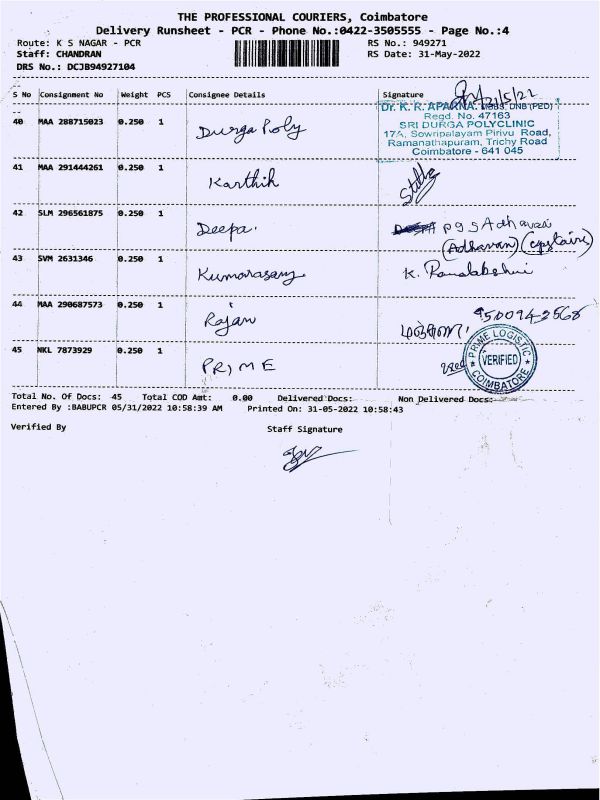 THE PROFESSIONAL COURIERS, Coimbatore
Delivery Runsheet - PCR - Phone No.:0422-3505555 - Page No.:4
Route: K S NAGAR - PCR RS No.: 949271
Staff: CHANDRAN RS Date: 31-May-2022
DRS No.: DCJB94927104
S No Consignment No Weight PCS Consignee Details Signature
40 MAA 288715023 0.250 1 Durga Poly 31/5/22
Dr. K. R. APARNA. MBBS. DNB (PED)
Regd. No. 47163
SRI DURGA POLYCLINIC
17A, Sowripalayam Pirivu Road,
Ramanathapuram, Trichy Road
Coimbatore - 641 045
41 MAA 291444261 0.250 1 Karthik
42 SLM 296561875 0.250 1 Deepa. PGS Adhavan
(Adhavan) (upstairs)
43 SVM 2631346 0.250 1 Kumarasamy K.
44 MAA 290687573 0.250 1 Rajan மஞ்சுளா
45 NKL 7873929 0.250 1 PRIME
PRIME LOGISTIC
VERIFIED
COIMBATORE
Total No. Of Docs: 45 Total COD Amt: 0.00 Delivered Docs: Non Delivered Docs:
Entered By :BABUPCR 05/31/2022 10:58:39 AM Printed On: 31-05-2022 10:58:43
Verified By Staff Signature